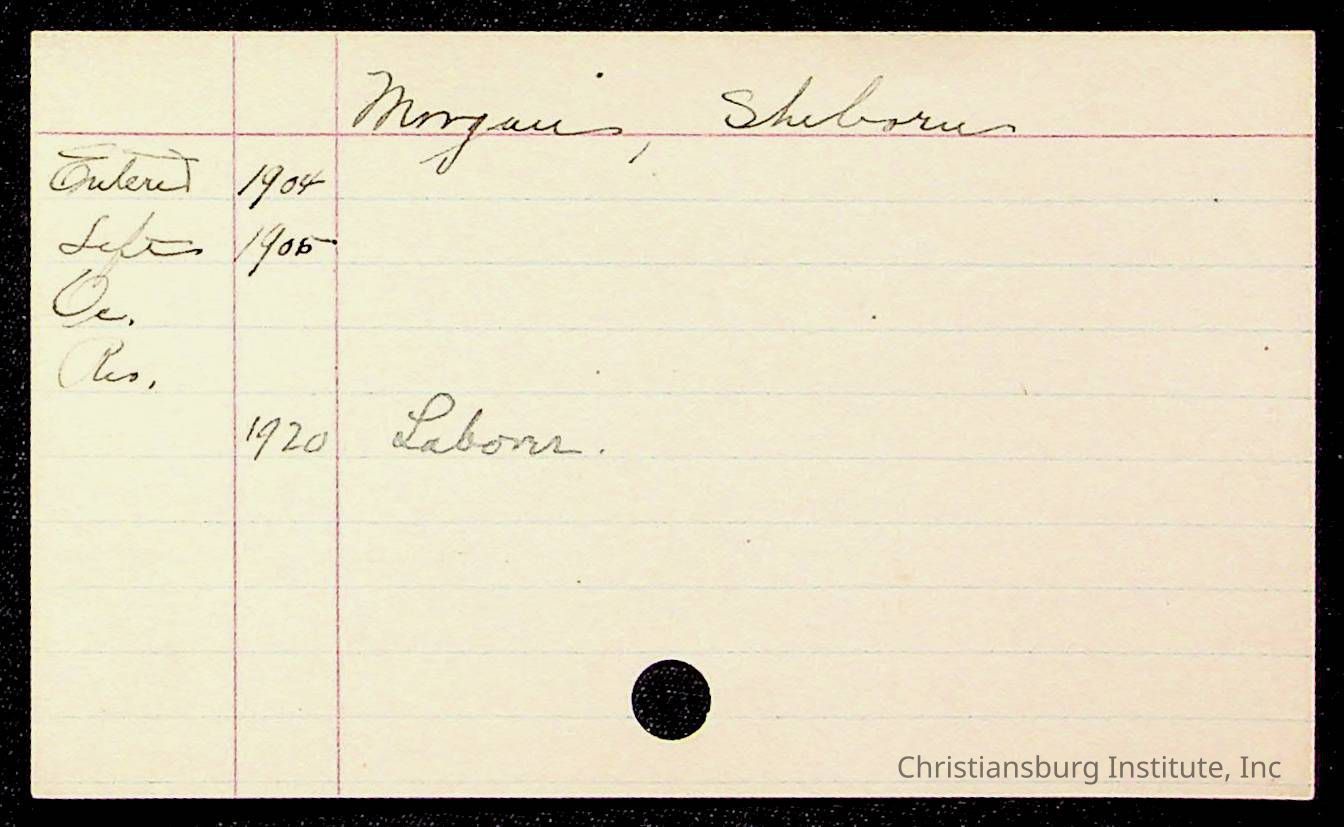 Morgan, Sheborn
Entered 1904
Left 1905
Oc.
Res.
1920 Laborer.
Christiansburg Institute, Inc